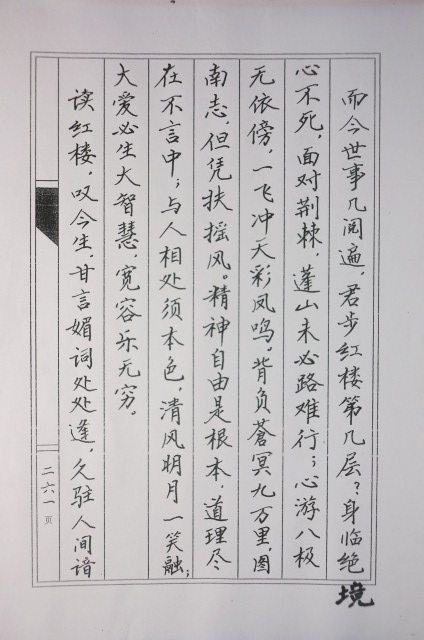 而今世事几阅遍，君步红楼第几层？身临绝
境
心不死，面对荆棘，蓬山未必路难行；心游八极
无依傍，一飞冲天彩凤鸣。背负苍冥九万里，图
南志，但凭扶摇风。精神自由是根本，道理尽
在不言中；与人相处须本色，清风明月一笑融；
大爱必生大智慧，宽容乐无穷。
读红楼，叹今生，甘言媚词处处逢，久驻人间谙
二六一页